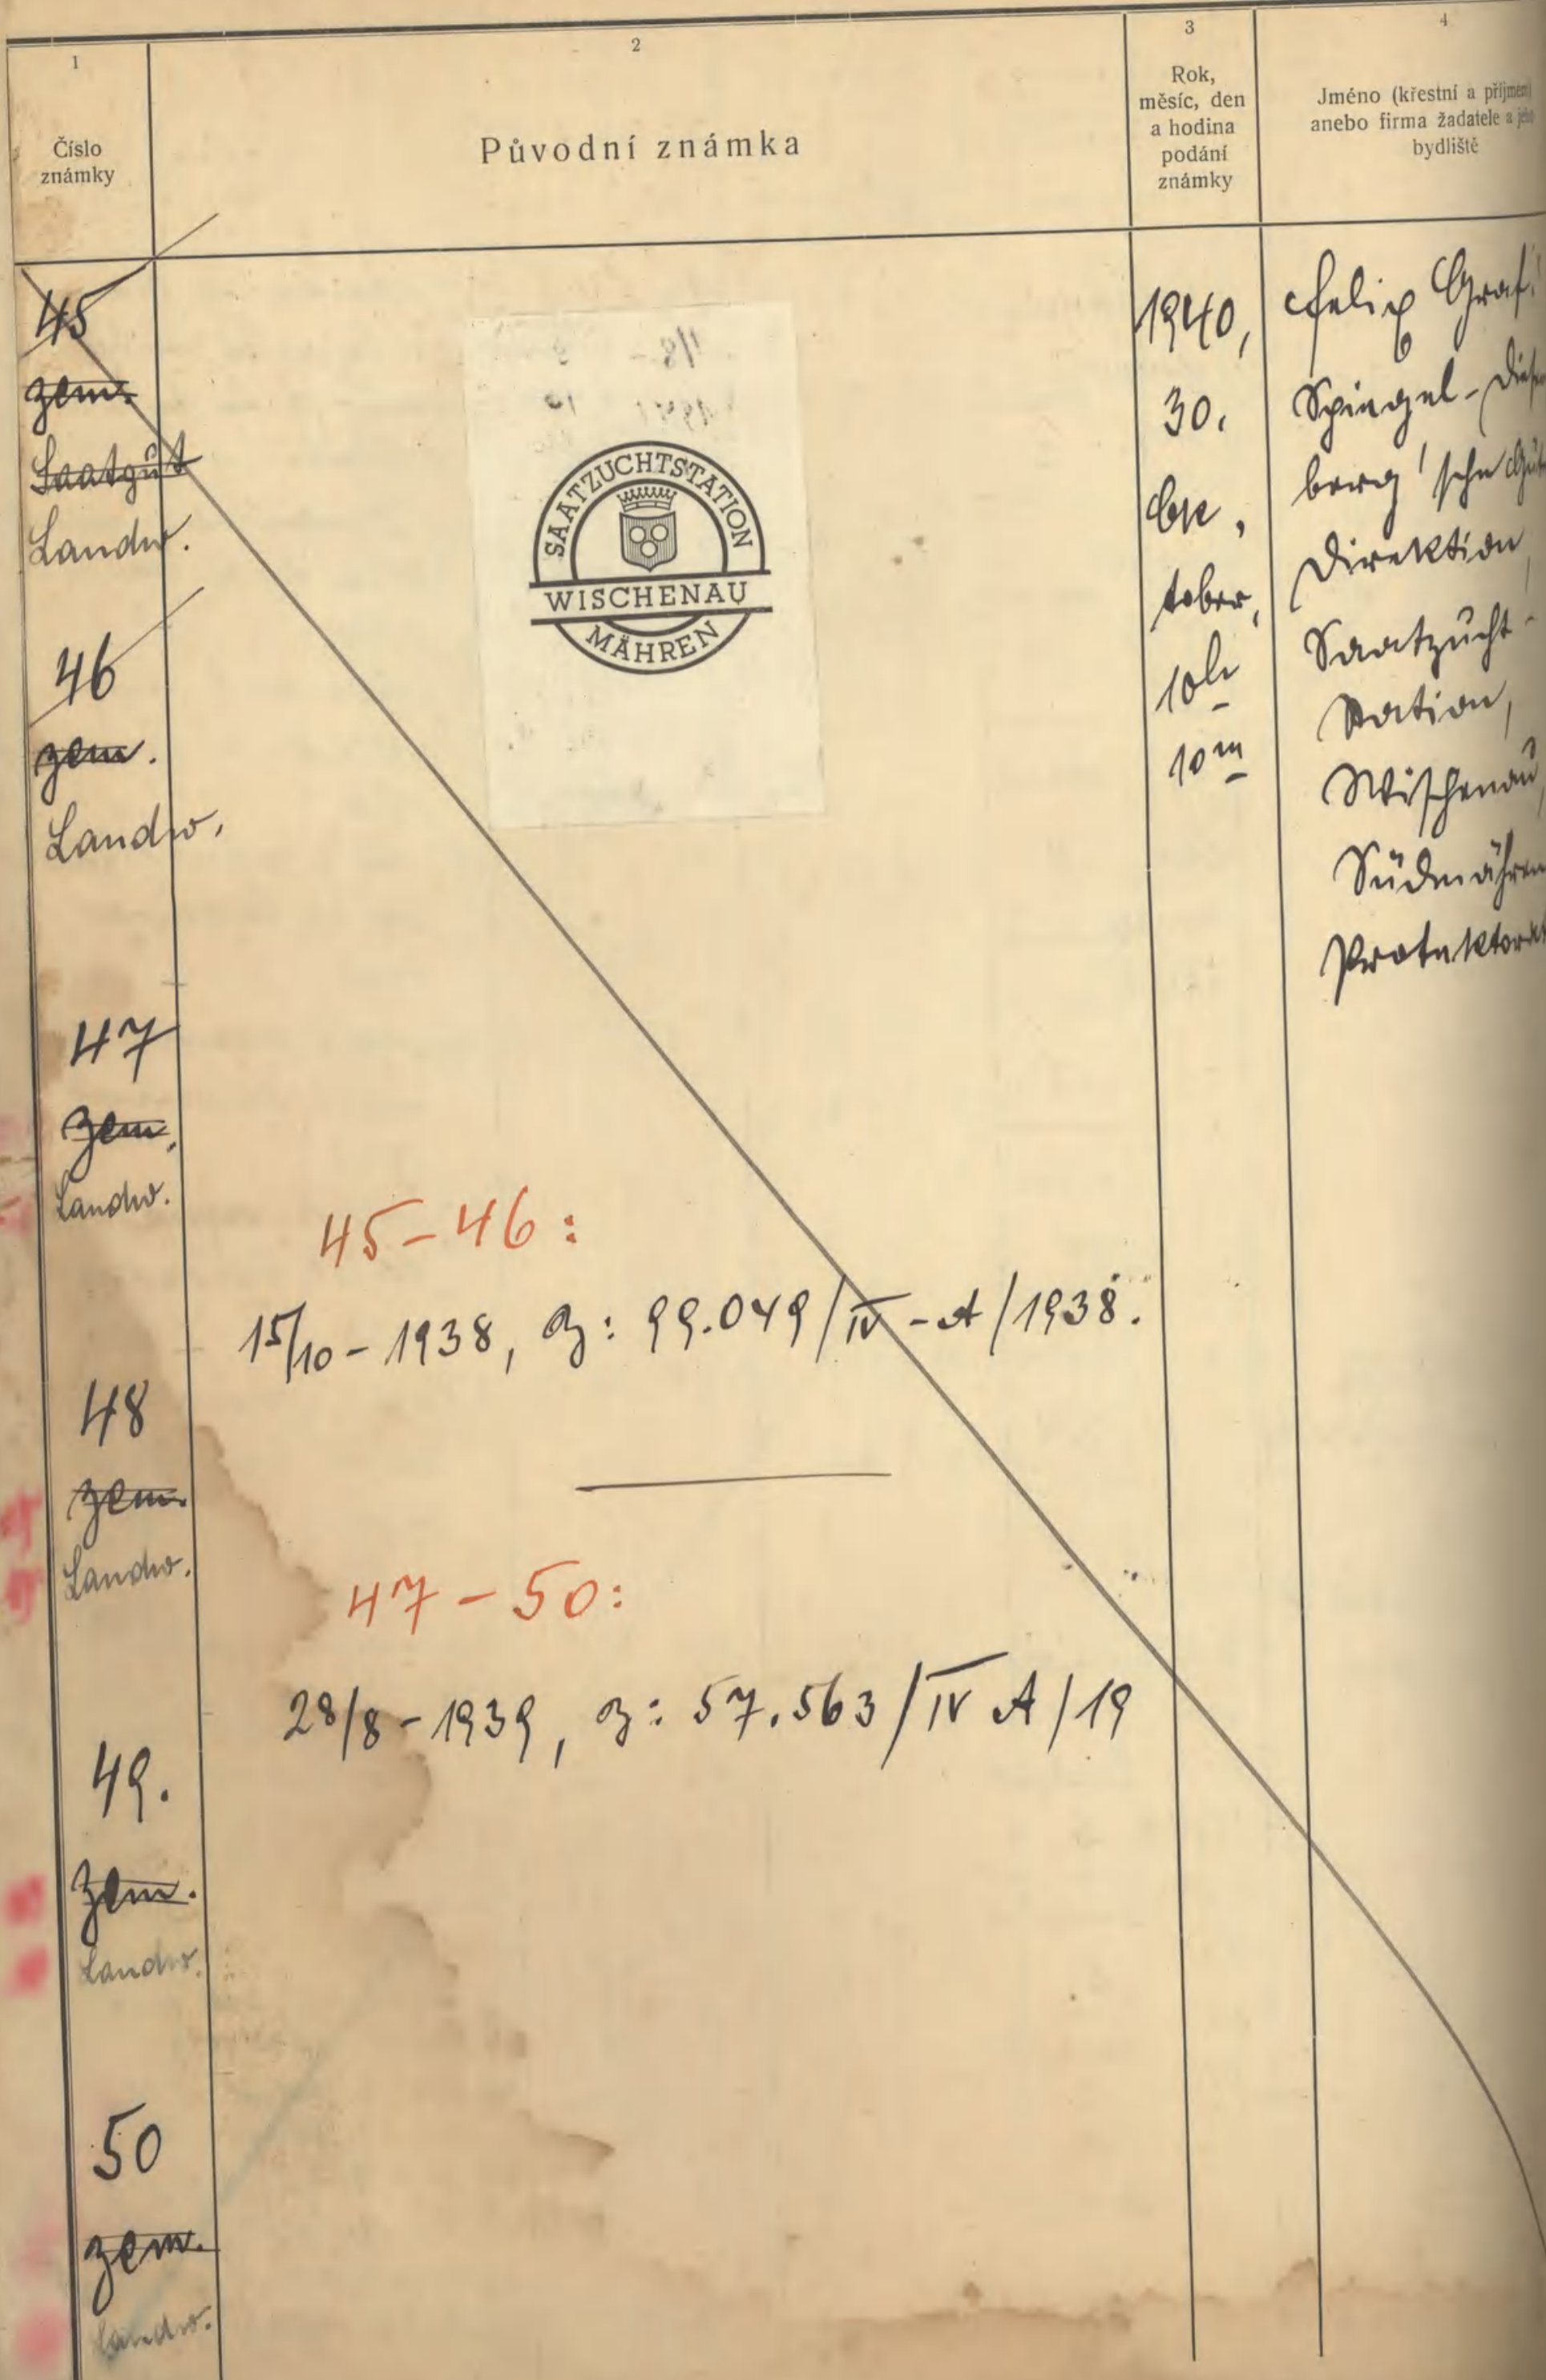 1
Číslo
známky
2
Původní známka
3
Rok,
měsíc, den
a hodina
podání
známky
4
Jméno (křestní a příjmení)
anebo firma žadatele a jeho
bydliště
45
zem.
Saatgut
Landw.
46
zem.
Landw.
47
zem.
Landw.
48
zem.
Landw.
49.
zem.
Landw.
50
zem.
Landw.
SAATZUCHTSTATION
WISCHENAU
MÄHREN
45-46:
15/10-1938, Z: 99.049/IV-A/1938.
47-50:
28/8-1939, Z: 57.563/IV A/19
1940,
30.
Ok,
tober,
10h
10m
Felix Graf
Spiegel-
berg'sche
Direktion,
Saatzucht-
Station,
Wischenau,
Südmähren
Protektorat